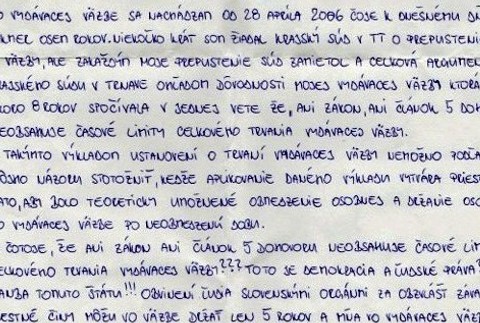 VYDÁVACEJ VÄZBE SA NACHÁDZAM OD 28 APRÍLA 2006 ČOJE K DNEŠNÉMU
OSEM ROKOV. NIEKOĽKO KRÁT SOM ŽIADAL KRAJSKÝ SÚD V TT O PREPUSTENIE
VÄZBY, ALE ZAKAŽDÝM MOJE PREPUSTENIE SÚD ZAMIETOL A CELKOVÁ
SÚDU V TRNAVE OHĽADOM DÔVODNOSTI MOJEJ VYDÁVACEJ VÄZBY KTORÁ
8 ROKOV SPOČÍVALA V JEDNEJ VETE ŽE, ANI ZÁKON, ANI ČLÁNOK 5
ČASOVÉ LIMITY CELKOVÉHO TRVANIA VYDÁVACEJ VÄZBY.
TAKÝMTO VÝKLADOM USTANOVENÍ O TRVANÍ VYDÁVACEJ VÄZBY NEMOŽNO
NÁZORU STOTOŽNIŤ, KEDŽE APLIKOVANIE DANÉHO VÝKLADU VYTVÁRA
ABY BOLO TEORETICKY UMOŽNENÉ OBMEDZENIE OSOBNEJ A DRŽANIE
VYDÁVACEJ VÄZBE PO NEOBMEDZENÚ DOBU.
ČOTOJE, ŽE ANI ZÁKON ANI ČLÁNOK 5 DOHOVORU NEOBSAHUJE ČASOVÉ
TRVANIA VYDÁVACEJ VÄZBY??? TOTO JE DEMOKRACIA A ĽUDSKÉ PRÁVA?
TOMUTO ŠTÁTU!!! OBVINENÍ ĽUDIA SLOVENSKÝMI ORGÁNMI ZA OBZVLÁŠŤ
ČINY MÔŽU VO VÄZBE DRŽAŤ LEN 5 ROKOV A MŇA VO VYDÁVACEJ